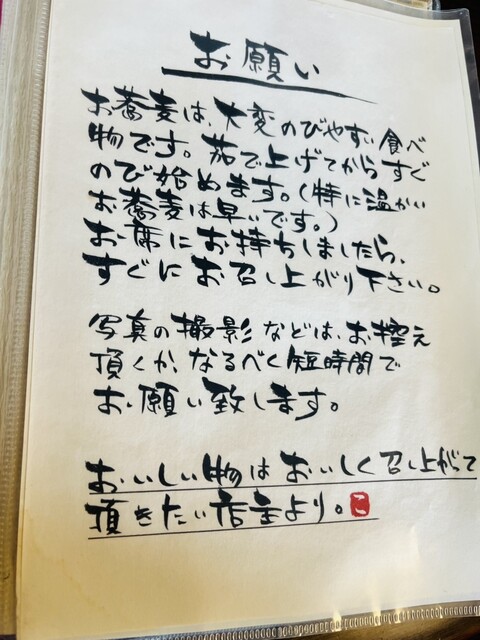 お願い
お蕎麦は、大変のびやすい食べ
物です。茹で上げてからすぐ
のび始めます。(特に温かい
お蕎麦は早いです。)
お席にお持ちしましたら、
すぐにお召し上がり下さい。
写真の撮影などは、お控え
頂くか、なるべく短時間で
お願い致します。
おいしい物はおいしく召し上がって
頂きたい店主より。こ